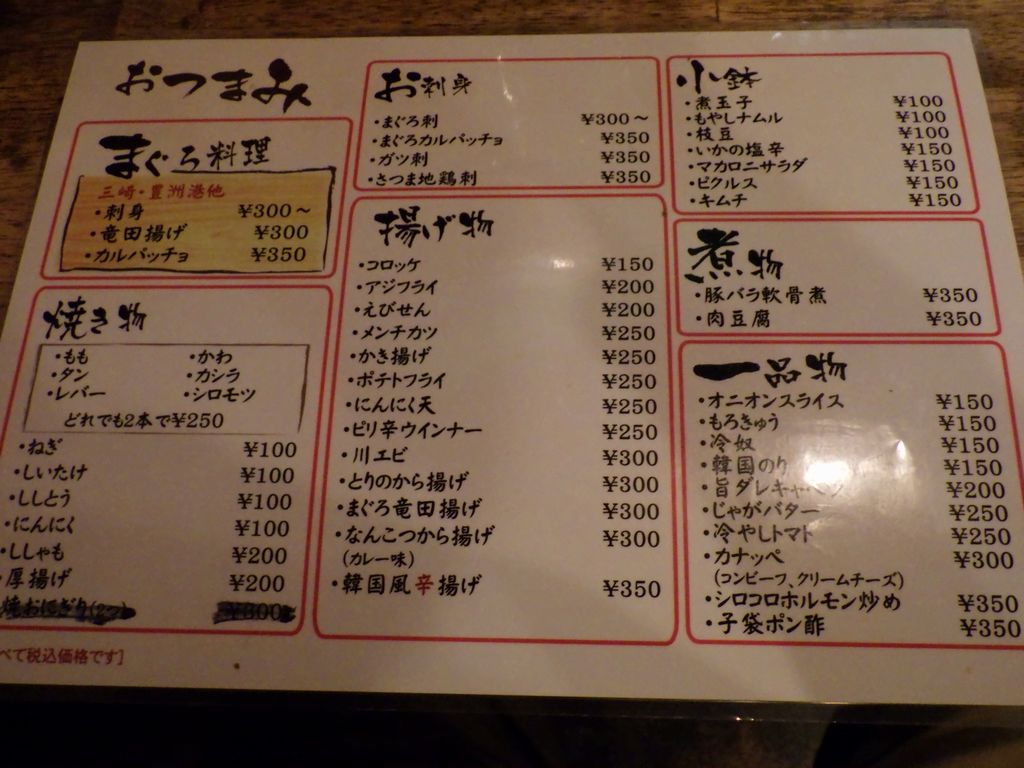 おつまみ
まぐろ料理
三崎・豊洲港他
・刺身 ¥300～
・竜田揚げ ¥300
・カルパッチョ ¥350
焼き物
・もも ・かわ
・タン ・カシラ
・レバー ・シロモツ
どれでも2本で¥250
・ねぎ ¥100
・しいたけ ¥100
・ししとう ¥100
・にんにく ¥100
・ししゃも ¥200
・厚揚げ ¥200
焼おにぎり(2つ) ¥300
べて税込価格です]
お刺身
・まぐろ刺 ¥300～
・まぐろカルパッチョ ¥350
・ガツ刺 ¥350
・さつま地鶏刺 ¥350
揚げ物
・コロッケ ¥150
・アジフライ ¥200
・えびせん ¥200
・メンチカツ ¥250
・かき揚げ ¥250
・ポテトフライ ¥250
・にんにく天 ¥250
・ピリ辛ウインナー ¥250
・川エビ ¥300
・とりのから揚げ ¥300
・まぐろ竜田揚げ ¥300
・なんこつから揚げ ¥300
(カレー味)
・韓国風辛揚げ ¥350
小鉢
・煮玉子 ¥100
・もやしナムル ¥100
・枝豆 ¥100
・いかの塩辛 ¥150
・マカロニサラダ ¥150
・ピクルス ¥150
・キムチ ¥150
煮物
・豚バラ軟骨煮 ¥350
・肉豆腐 ¥350
一品物
・オニオンスライス ¥150
・もろきゅう ¥150
・冷奴 ¥150
・韓国のり ¥150
・旨ダレキャベツ ¥200
・じゃがバター ¥250
・冷やしトマト ¥250
・カナッペ ¥300
(コンビーフ、クリームチーズ)
・シロコロホルモン炒め ¥350
・子袋ポン酢 ¥350